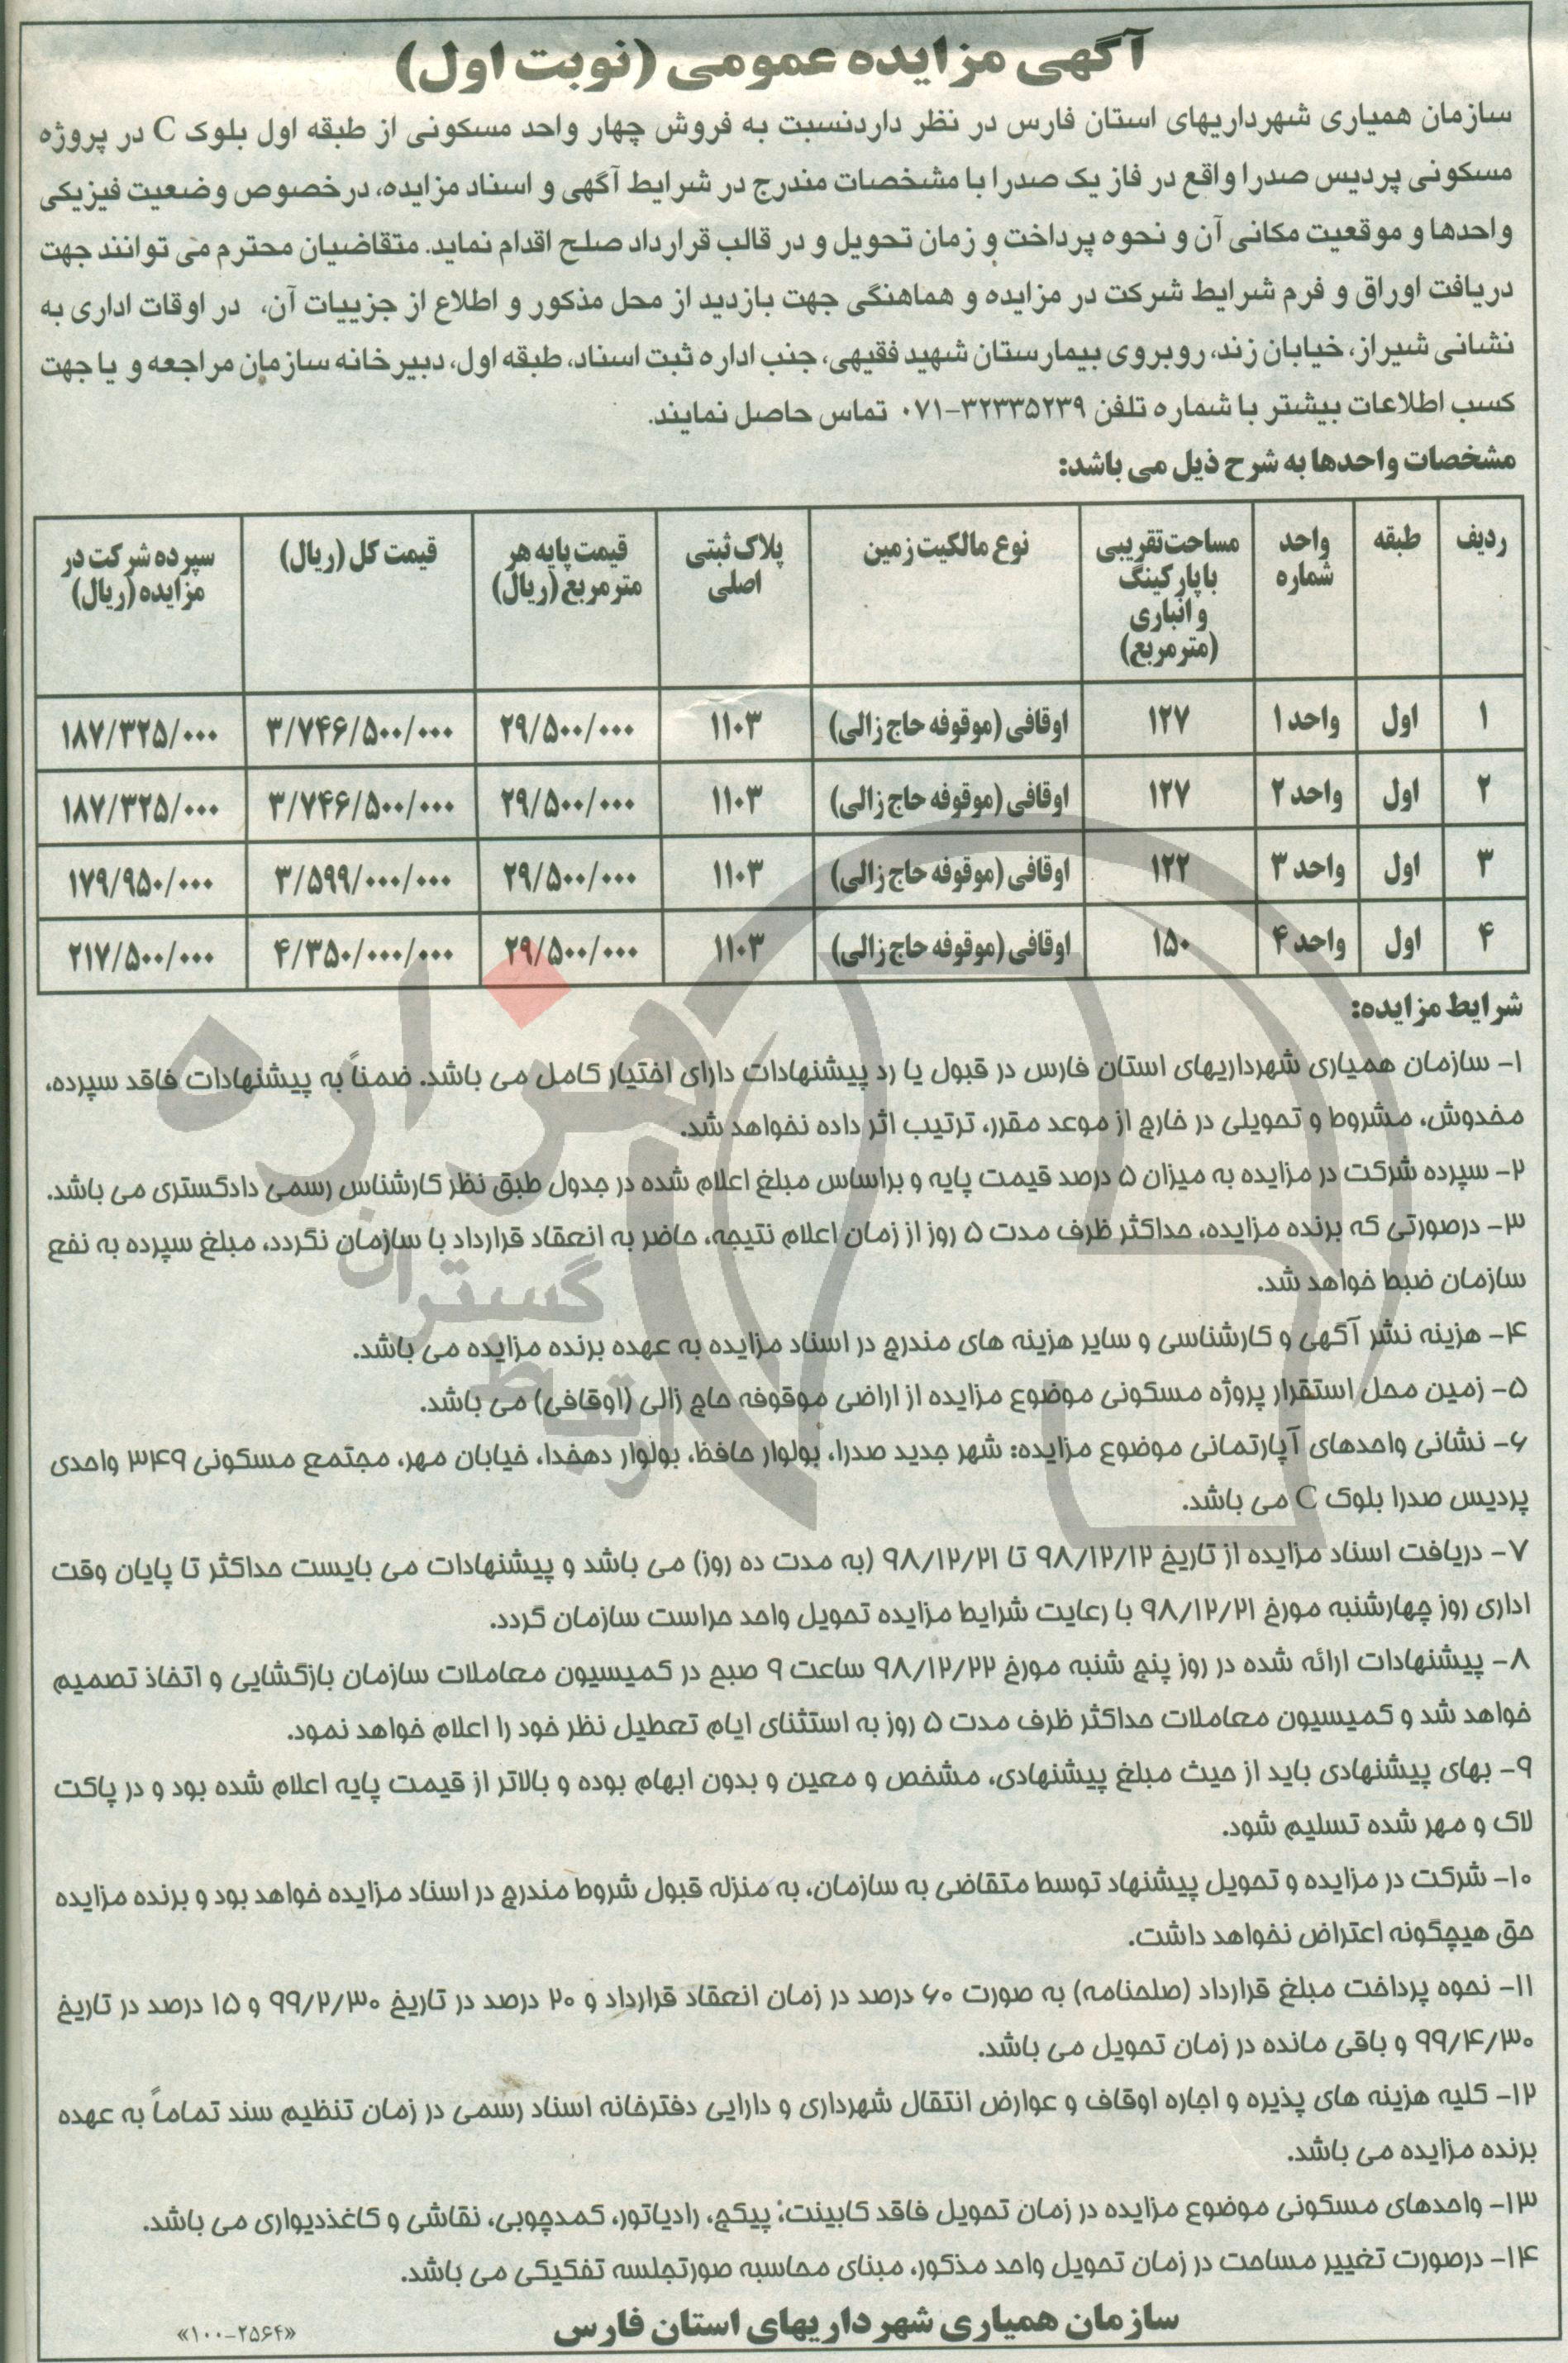 آگهی مزایده عمومی (نوبت اول)
سازمان همیاری شهرداریهای استان فارس در نظر داردنسبت به فروش چهار واحد مسکونی از طبقه اول بلوک C در پروژه
مسکونی پردیس صدرا واقع در فاز یک صدرا با مشخصات مندرج در شرایط آگهی و اسناد مزایده، درخصوص وضعیت فیزیکی
واحدها و موقعیت مکانی آن و نحوه پرداخت و زمان تحویل و در قالب قرارداد صلح اقدام نماید. متقاضیان محترم می توانند جهت
دریافت اوراق و فرم شرایط شرکت در مزایده و هماهنگی جهت بازدید از محل مذکور و اطلاع از جزییات آن، در اوقات اداری به
نشانی شیراز، خیابان زند، روبروی بیمارستان شهید فقیهی، جنب اداره ثبت اسناد، طبقه اول، دبیرخانه سازمان مراجعه و یا جهت
کسب اطلاعات بیشتر با شماره تلفن ۳۲۳۳۵۲۳۹-۰۷۱ تماس حاصل نمایند.
مشخصات واحدها به شرح ذیل می باشد:
ردیف | طبقه | واحد شماره | مساحت تقریبی با پارکینگ و انباری (مترمربع) | نوع مالکیت زمین | پلاک ثبتی اصلی | قیمت پایه هر مترمربع (ریال) | قیمت کل (ریال) | سپرده شرکت در مزایده (ریال)
۱ | اول | واحد ۱ | ۱۲۷ | اوقافی (موقوفه حاج زالی) | ۱۱۰۳ | ۲۹/۵۰۰/۰۰۰ | ۳/۷۴۶/۵۰۰/۰۰۰ | ۱۸۷/۳۲۵/۰۰۰
۲ | اول | واحد ۲ | ۱۲۷ | اوقافی (موقوفه حاج زالی) | ۱۱۰۳ | ۲۹/۵۰۰/۰۰۰ | ۳/۷۴۶/۵۰۰/۰۰۰ | ۱۸۷/۳۲۵/۰۰۰
۳ | اول | واحد ۳ | ۱۲۲ | اوقافی (موقوفه حاج زالی) | ۱۱۰۳ | ۲۹/۵۰۰/۰۰۰ | ۳/۵۹۹/۰۰۰/۰۰۰ | ۱۷۹/۹۵۰/۰۰۰
۴ | اول | واحد ۴ | ۱۵۰ | اوقافی (موقوفه حاج زالی) | ۱۱۰۳ | ۲۹/۵۰۰/۰۰۰ | ۴/۳۵۰/۰۰۰/۰۰۰ | ۲۱۷/۵۰۰/۰۰۰
شرایط مزایده:
۱- سازمان همیاری شهرداریهای استان فارس در قبول یا رد پیشنهادات دارای اختیار کامل می باشد. ضمناً به پیشنهادات فاقد سپرده،
مخدوش، مشروط و تحویلی در خارج از موعد مقرر، ترتیب اثر داده نخواهد شد.
۲- سپرده شرکت در مزایده به میزان ۵ درصد قیمت پایه و براساس مبلغ اعلام شده در جدول طبق نظر کارشناس رسمی دادگستری می باشد.
۳- درصورتی که برنده مزایده، حداکثر ظرف مدت ۵ روز از زمان اعلام نتیجه، حاضر به انعقاد قرارداد با سازمان نگردد، مبلغ سپرده به نفع
سازمان ضبط خواهد شد.
۴- هزینه نشر آگهی و کارشناسی و سایر هزینه های مندرج در اسناد مزایده به عهده برنده مزایده می باشد.
۵- زمین محل استقرار پروژه مسکونی موضوع مزایده از اراضی موقوفه حاج زالی (اوقافی) می باشد.
۶- نشانی واحدهای آپارتمانی موضوع مزایده: شهر جدید صدرا، بولوار حافظ، بولوار دهخدا، خیابان مهر، مجتمع مسکونی ۳۴۹ واحدی
پردیس صدرا بلوک C می باشد.
۷- دریافت اسناد مزایده از تاریخ ۹۸/۱۲/۱۲ تا ۹۸/۱۲/۲۱ (به مدت ده روز) می باشد و پیشنهادات می بایست حداکثر تا پایان وقت
اداری روز چهارشنبه مورخ ۹۸/۱۲/۲۱ با رعایت شرایط مزایده تحویل واحد حراست سازمان گردد.
۸- پیشنهادات ارائه شده در روز پنج شنبه مورخ ۹۸/۱۲/۲۲ ساعت ۹ صبح در کمیسیون معاملات سازمان بازگشایی و اتخاذ تصمیم
خواهد شد و کمیسیون معاملات حداکثر ظرف مدت ۵ روز به استثنای ایام تعطیل نظر خود را اعلام خواهد نمود.
۹- بهای پیشنهادی باید از حیث مبلغ پیشنهادی، مشخص و معین و بدون ابهام بوده و بالاتر از قیمت پایه اعلام شده بود و در پاکت
لاک و مهر شده تسلیم شود.
۱۰- شرکت در مزایده و تحویل پیشنهاد توسط متقاضی به سازمان، به منزله قبول شروط مندرج در اسناد مزایده خواهد بود و برنده مزایده
حق هیچگونه اعتراض نخواهد داشت.
۱۱- نحوه پرداخت مبلغ قرارداد (صلحنامه) به صورت ۶۰ درصد در زمان انعقاد قرارداد و ۲۰ درصد در تاریخ ۹۹/۲/۳۰ و ۱۵ درصد در تاریخ
۹۹/۴/۳۰ و باقی مانده در زمان تحویل می باشد.
۱۲- کلیه هزینه های پذیره و اجاره اوقاف و عوارض انتقال شهرداری و دارایی دفترخانه اسناد رسمی در زمان تنظیم سند تماماً به عهده
برنده مزایده می باشد.
۱۳- واحدهای مسکونی موضوع مزایده در زمان تحویل فاقد کابینت، پیکج، رادیاتور، کمدچوبی، نقاشی و کاغذدیواری می باشد.
۱۴- درصورت تغییر مساحت در زمان تحویل واحد مذکور، مبنای محاسبه صورتجلسه تفکیکی می باشد.
سازمان همیاری شهرداریهای استان فارس
«۱۰۰-۲۵۶۴»
هزاره
گستران